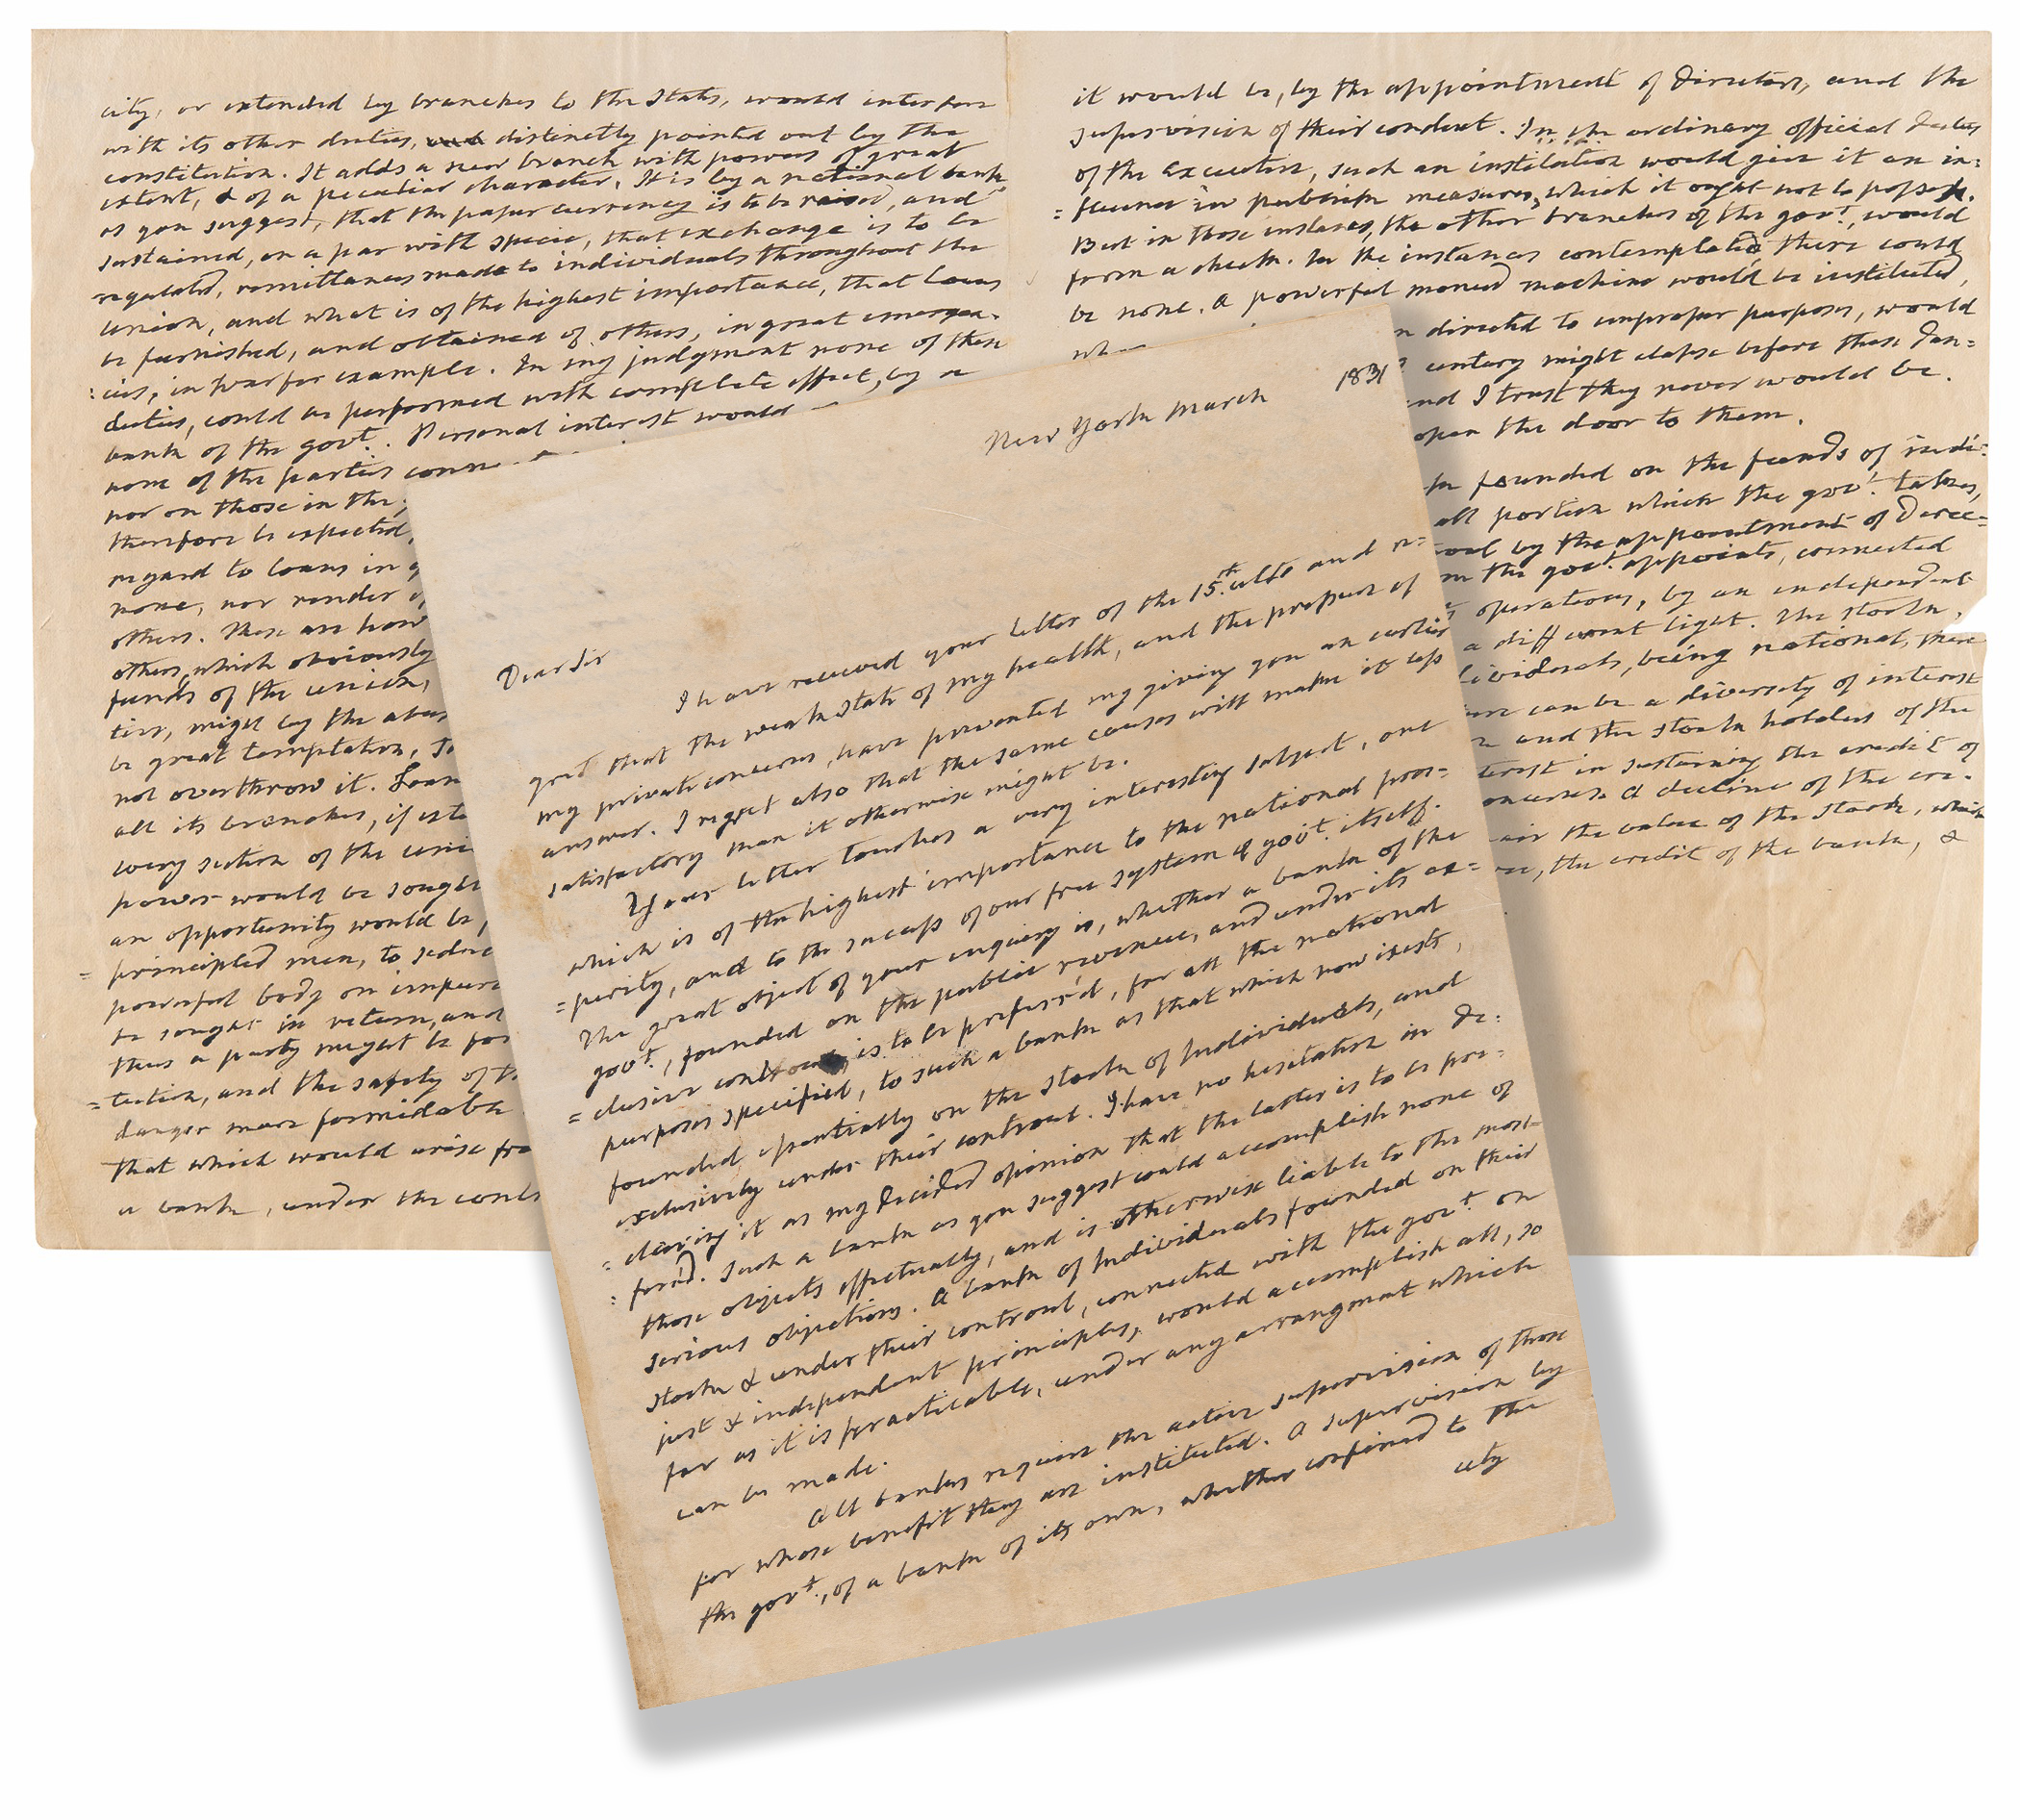 New York March 1831
Dear Sir
I have received your letter of the 15.th ulto and re=
gret that the weak state of my health, and the pressure of
my private concerns, have prevented my giving you an earlier
answer. I regret also that the same causes will make it less
satisfactory than it otherwise might be.
Your letter touches a very interesting subject, one
which is of the highest importance to the national pros=
=perity, and to the success of our free system of govt. itself.
The great object of your inquiry is, whether a bank of the
govt., founded on the public revenue, and under its ex=
=clusive controul, is to be preferr'd, for all the national
purposes specified, to such a bank as that which now exists,
founded essentially on the stock of Individuals, and
exclusively under their controul. I have no hesitation in de:
claring it as my decided opinion that the latter is to be pre:
: ferr'd. Such a bank as you suggest could accomplish none of
those objects effectually, and is otherwise liable to the most
serious objections. A bank of Individuals founded on their
stock & under their controul, connected with the govt. on
just & independent principles, would accomplish all, so
far as it is practicable, under any arrangment which
can be made.
All banks require the active supervision of those
for whose benefit they are instituted. A supervision by
the govt., of a bank of its own, whether confined to the
city
city, or extended by branches to the States, would interfere
with its other duties, distinctly pointed out by the
constitution. It adds a new branch with powers of great
extent, & of a peculiar character. It is by a national bank
as you suggest, that the paper currency is to be raised, and
sustained, on a par with specie, that exchange is to be
regulated, remittances made to individuals throughout the
union, and what is of the highest importance, that loans
be furnished, and obtained of others, in great emergen-
:cies, in war for example. In my judgment none of these
duties, could be performed with complete effect, by a
bank of the govt. Personal interest would
none of the parties
nor on those in the
therefore be expected,
regard to loans in
none, nor render
others. These are how
others, which obviously
funds of the union,
ties, might by the abus
be great temptation,
not overthrow it. Loan
all its branches, if esta
every section of the uni
power would be sough
an opportunity would be
= principled men, to seduc
powerful body on impure
be sought in return, and
thus a party might be for
= tection, and the safety of t
danger more formidable
that which would arise fro
a bank, under the cont
it would be, by the appointment of Directors, and the
supervision of their conduct. In the ordinary official duties
of the Executive, such an institution would give it an in:
= fluence in publick measures, which it ought not to possess.
But in those instances, the other branches of the govt. would
form a check. In the instances contemplated there could
be none. A powerful monied machine would be instituted,
directed to improper purposes, would
century might elapse before these dan=
and I trust they never would be.
open the door to them.
founded on the funds of indi:
all portion which the govt. takes,
by the appointment of Direc=
the govt. appoints, connected
operations, by an independent
a different light. The stock,
dividuals, being national, there
can be a diversity of interest
and the stock holders of the
terest in sustaining the credit of
A decline of the cre-
the value of the stock, which
the credit of the bank, &